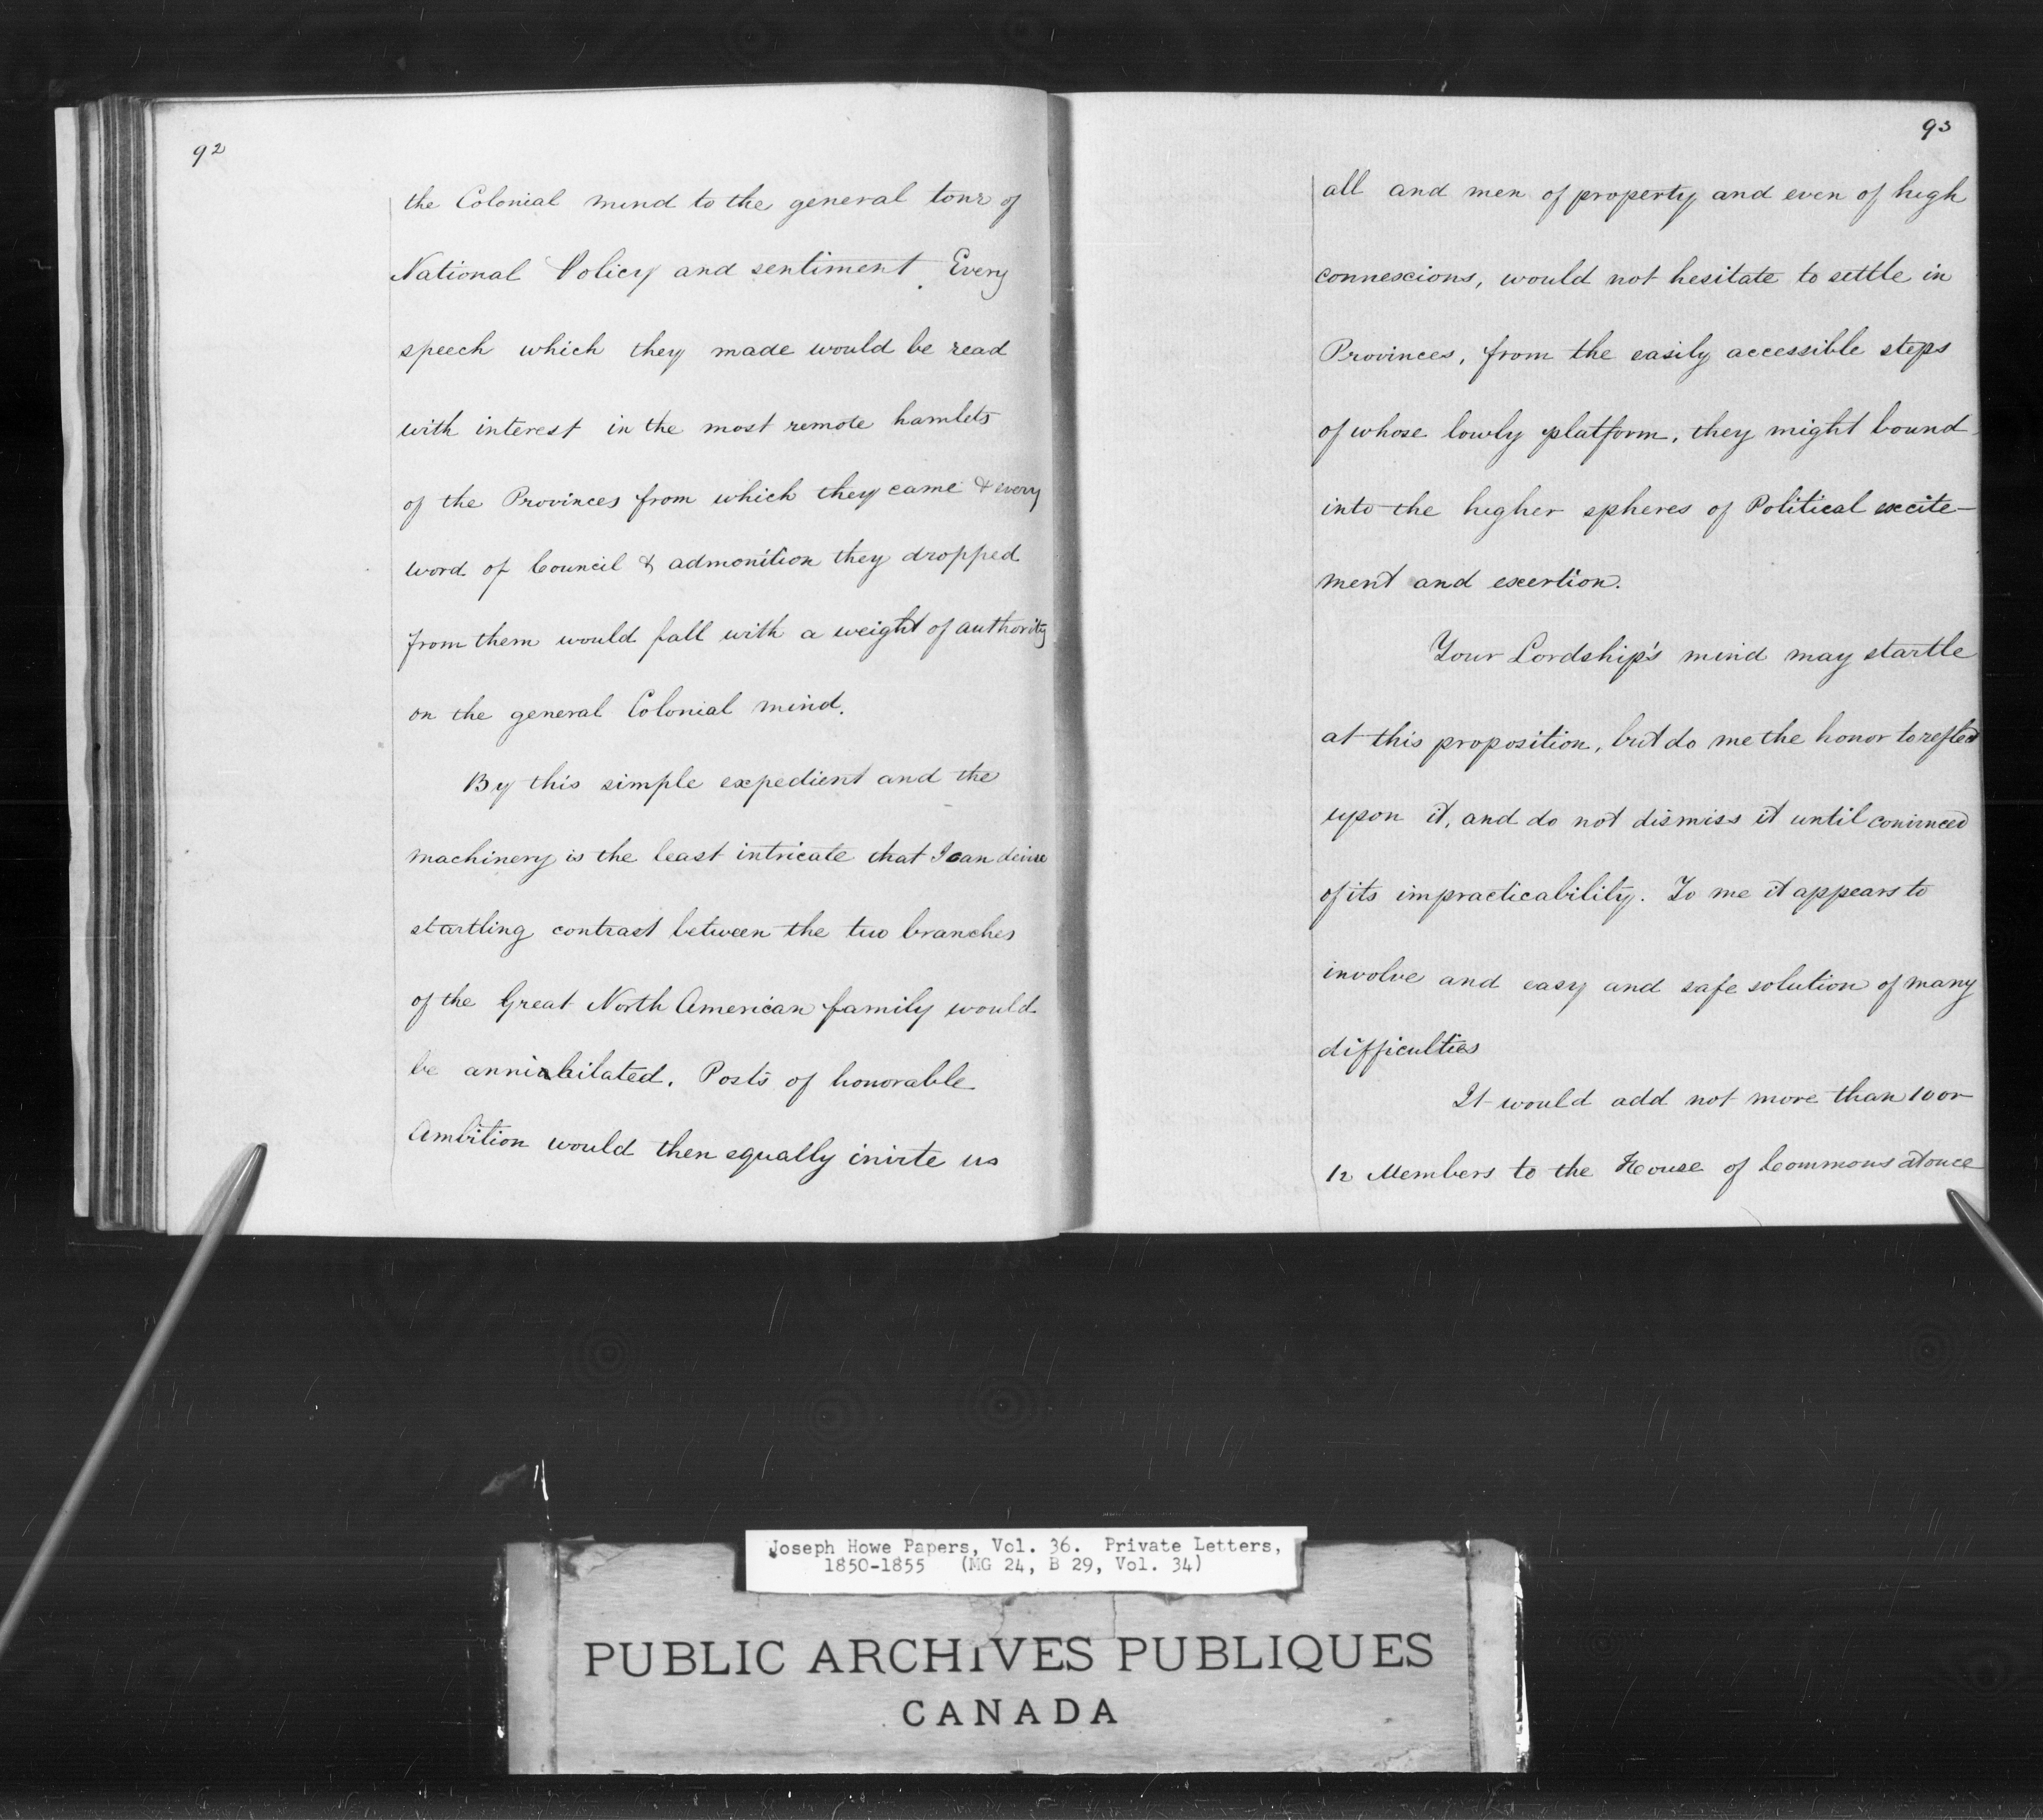 92
the Colonial mind to the general tone of
National Policy and sentiment. Every
speech which they made would be read
with interest in the most remote hamlets
of the Provinces from which they came & every
word of Council & admonition they dropped
from them would fall with a weight of authority
on the general Colonial mind.
By this simple expedient and the
machinery is the least intricate that I can devise
startling contrast between the two branches
of the Great North American family would
be annihilated. Posts of honorable
Ambition would then equally invite us
93
all and men of property and even of high
connexions, would not hesitate to settle in
Provinces, from the easily accessible steps
of whose lowly platform, they might bound
into the higher spheres of Political excite-
ment and exertion.
Your Lordship's mind may startle
at this proposition, but do me the honor to reflect
upon it, and do not dismiss it until convinced
of its impracticability. To me it appears to
involve and easy and safe solution of many
difficulties
It would add not more than 10 or
12 Members to the House of Commons at once
Joseph Howe Papers, Vol. 36. Private Letters,
1850-1855 (MG 24, B 29, Vol. 34)
PUBLIC ARCHIVES PUBLIQUES
CANADA